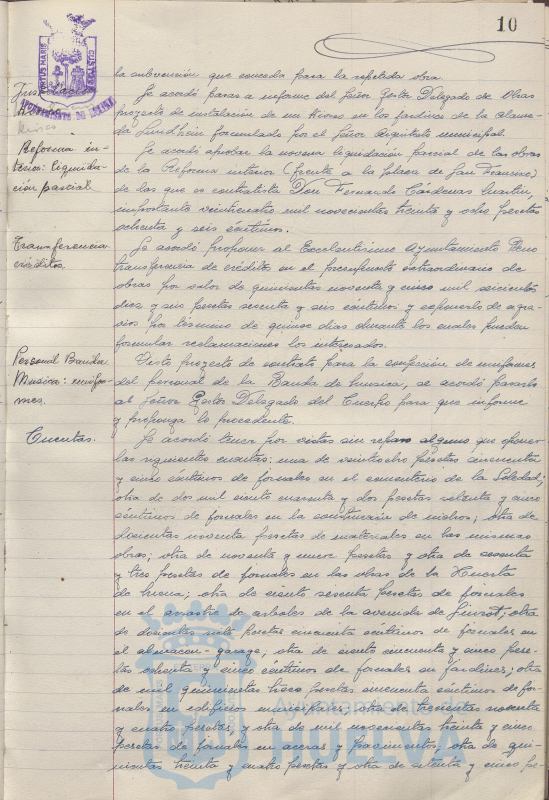 10
PORTUS MARIS
CUSTODIA
AYUNTAMIENTO DE HUELVA
la subvención que conceda para la repetida obra.
Se acordó pasar a informe del Señor Gestor Delegado de Obras
proyecto de instalación de un kiosco en los jardines de la alame-
da Sundheim formulado por el Señor Arquitecto municipal.
Reforma in-
terior: liquida-
ción parcial
Se acordó aprobar la novena liquidación parcial de las obras
de la Reforma interior (frente a la plaza de San Francisco)
de las que es contratista Don Fernando Cárdenas Martín,
importante veinticuatro mil novecientas treinta y ocho pesetas
ochenta y seis céntimos.
Transferencia
créditos.
Se acordó proponer al Excelentísimo Ayuntamiento Pleno
transferencia de créditos en el presupuesto extraordinario de
obras por valor de quinientas noventa y cinco mil seiscientas
diez y seis pesetas sesenta y seis céntimos y exponerlo de agra-
vios por término de quince días durante los cuales puedan
formular reclamaciones los interesados.
Personal Banda
Música: unifor-
mes.
Visto proyecto de contrato para la confección de uniformes
del personal de la Banda de música, se acordó pasarlo
al Señor Gestor Delegado del Cuerpo para que informe
y proponga lo procedente.
Cuentas.
Se acordó tener por vistas sin reparo alguno que oponer
las siguientes cuentas: una de veintiocho pesetas cincuenta
y cinco céntimos de jornales en el cementerio de la Soledad;
otra de dos mil ciento cuarenta y dos pesetas setenta y cinco
céntimos de jornales en la construcción de nichos; otra de
doscientas noventa pesetas de materiales en las mismas
obras; otra de noventa y nueve pesetas y otra de sesenta
y tres pesetas de jornales en las obras de la Huerta
de Mena; otra de ciento sesenta pesetas de jornales
en el arrastre de árboles de la avenida de; otra
de doscientas siete pesetas cincuenta céntimos de jornales en
el almacén-garage; otra de ciento cincuenta y cinco pese-
tas ochenta y cinco céntimos de jornales en jardines; otra
de mil quinientas trece pesetas cincuenta céntimos de jor-
nales en edificios municipales; otra de trescientas noventa
y cuatro pesetas, y otra de mil novecientas treinta y cinco
pesetas de jornales en aceras y pavimentos; otra de qui-
nientas treinta y cuatro pesetas y otra de setenta y cinco pe-
Ayuntamiento
HUELVA